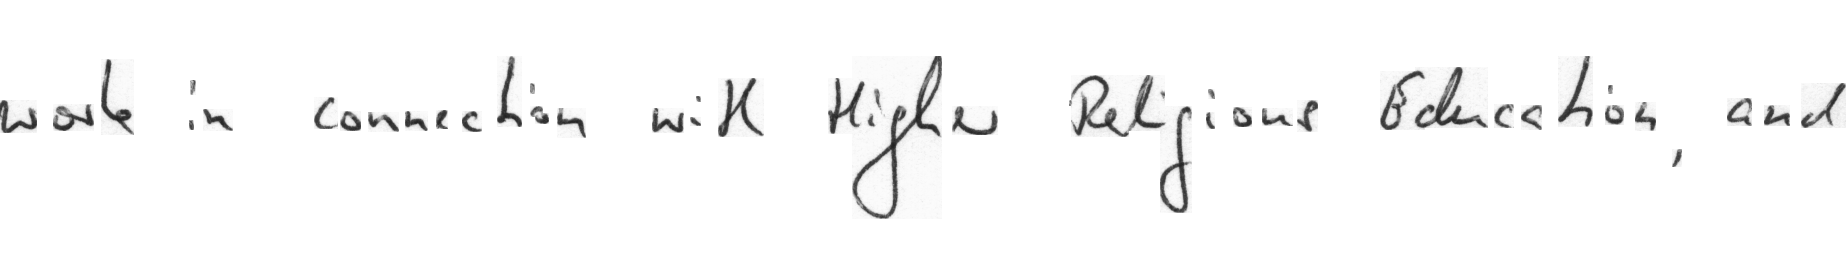 work in connection with Higher Religious Education, and